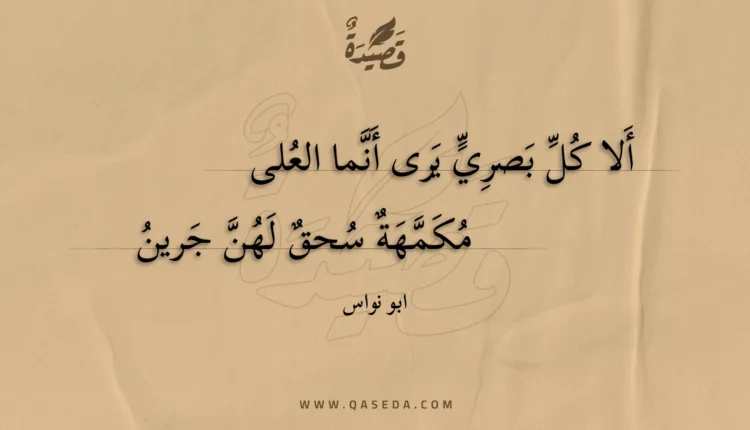 قَصِيدَةٌ
أَلا كُلِّ بَصرِيٍّ يَرى أَنَّما العُلى
مُكَمَّهَةٌ سُحقٌ لَهُنَّ جَرينُ
ابو نواس
WWW.QASEDA.COM